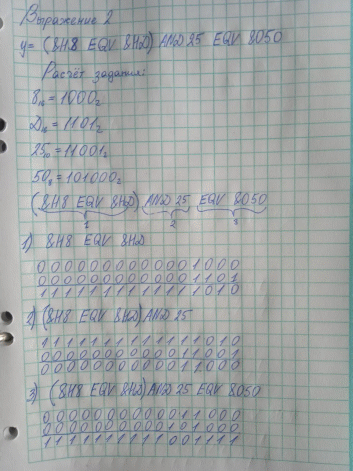 Выражение 2
y= (&H8 EQV &HD) AND 25 EQV &O50
Расчёт задания:
8₁₆ = 1000₂
D₁₆ = 1101₂
25₁₀ = 11001₂
50₈ = 101000₂
(&H8 EQV &HD) AND 25 EQV &O50
1 2 3
1) &H8 EQV &HD
0000000000001000
0000000000001101
1111111111111010
2) (&H8 EQV &HD) AND 25
1111111111111010
0000000000011001
0000000000011000
3) (&H8 EQV &HD) AND 25 EQV &O50
0000000000011000
0000000000101000
1111111111001111